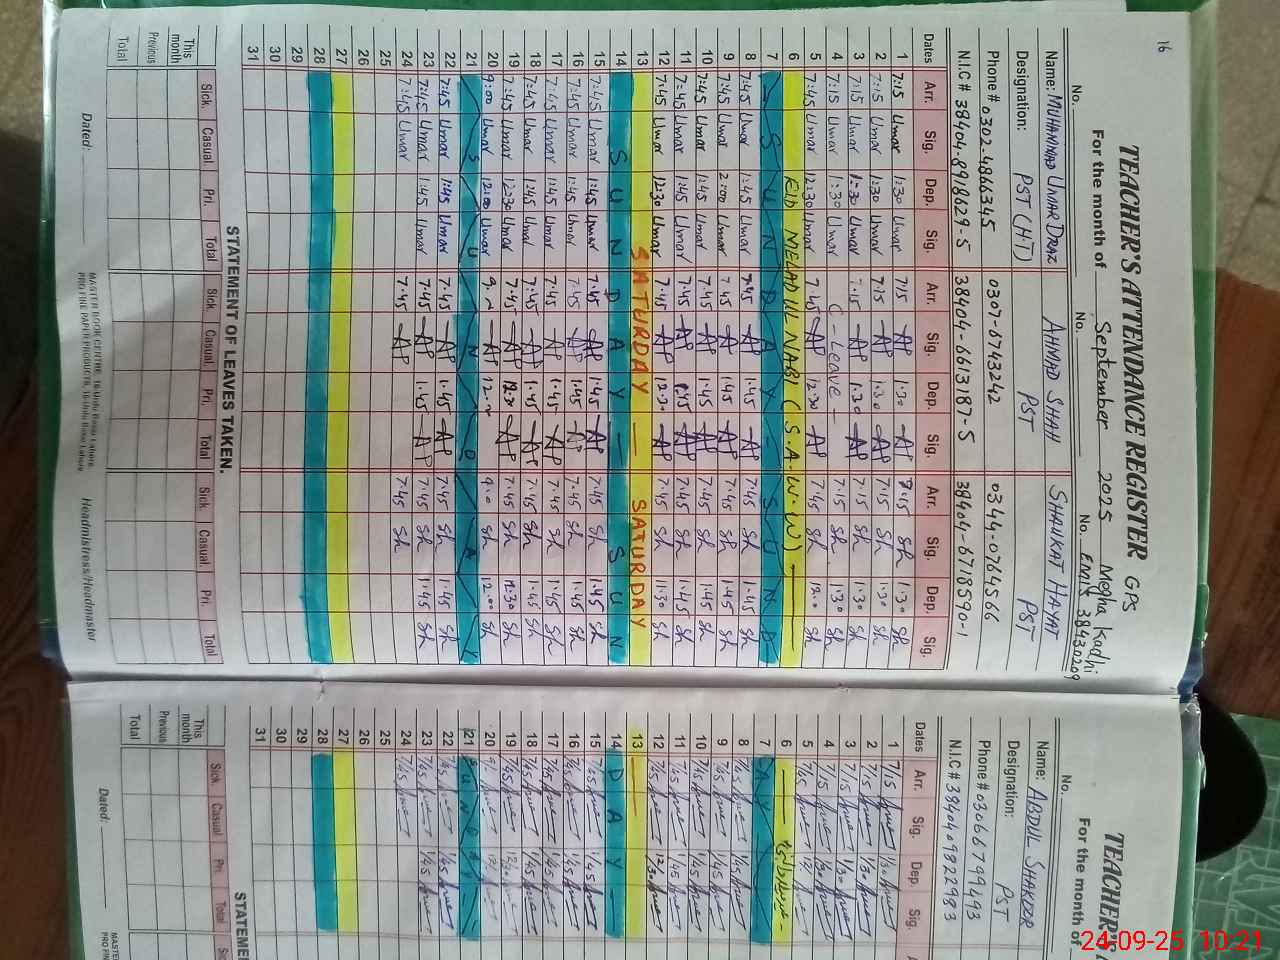 16
TEACHER'S ATTENDANCE REGISTER GPS
For the month of September 2025 Megha Kadhi
No. No. No. Emis 38430209
Name: MUHAMMAD UMAR DRAZ AHMAD SHAH SHAUKAT HAYAT
Designation: PST (HT) PST PST
Phone # 0302-4866345 0307-6743242 0344-0784566
N.I.C # 38404-8918629-5 38404-6613187-5 38404-6718590-1
Dates Arr. Sig. Dep. Sig. Arr. Sig. Dep. Sig. Arr. Sig. Dep. Sig.
1 7:15 Umar 1:30 Umar 7:15 AP 1:30 AP 7:15 Sh 1:30 Sh
2 7:15 Umar 1:30 Umar 7:15 AP 1:30 AP 7:15 Sh 1:30 Sh
3 7:15 Umar 1:30 Umar 7:15 AP 1:30 AP 7:15 Sh 1:30 Sh
4 7:15 Umar 1:30 Umar C-Leave - 7:15 Sh 1:30 Sh
5 7:45 Umar 12:30 Umar 7.45 AP 12:30 AP 7:45 Sh Sh
6 EID MELAD UL NABI (S.A.W.W)
7 SUNDAY - SUNDA
8 7:45 Umar 1:45 Umar 7.45 AP 1.45 AP 7.45 Sh 1.45 Sh
9 7:45 Umar 2:00 Umar 7.45 AP 1.45 AP 7.45 Sh 1.45 Sh
10 7:45 Umar 1:45 Umar 7.45 AP 1.45 AP 7.45 Sh 1.45 Sh
11 7:45 Umar 1:45 Umar 7.45 AP 1.45 AP 7.45 Sh 1.45 Sh
12 7:45 Umar 12:30 Umar 7.45 AP 12.30 AP 7.45 Sh Sh
13 SATURDAY — SATURDAY
14 SUNDAY — SUN
15 7:45 Umar 1:45 Umar 7.45 AP 1.45 AP 7.45 Sh 1.45 Sh
16 7:45 Umar 1:45 Umar 7.45 AP 1.45 AP 7.45 Sh 1.45 Sh
17 7:45 Umar 1:45 Umar 7.45 AP 1.45 AP 7.45 Sh 1.45 Sh
18 7:45 Umar 1:45 Umar 7.45 AP 1.45 AP 7.45 Sh 1.45 Sh
19 7:45 Umar 12:30 Umar 7.45 AP 12.30 AP 7.45 Sh 12.30 Sh
20 9:00 Umar 12:00 Umar AP AP Sh 12.00 Sh
21 SUNDAY
22 7:45 Umar 1:45 Umar 7.45 AP 1.45 AP 7.45 Sh 1.45 Sh
23 7:45 Umar 1:45 Umar 7.45 AP 1.45 AP 7.45 Sh 1.45 Sh
24 7:45 Umar 7.45 AP 7.45 Sh
25
26
27
28
29
30
31
STATEMENT OF LEAVES TAKEN.
Sick. Casual. Pri. Total Sick. Casual. Pri. Total Sick Casual. Pri. Total
This month
Previous
Total
Dated:
MASTER BOOK CENTRE, 16-Urdu Bazar Lahore.
PRO FINE PAPER PRODUCTS, 16-Urdu Bazar Lahore.
Headmistress/Headmaster
TEACHER'S
For the month of
No.
Name: ABDUL SHAKOOR
Designation: PST
Phone # 03066799493
N.I.C # 3840409822983
Dates Arr. Sig. Dep. Sig.
1 7/15 1/30
2 7/15 1/30
3 7/15 1/30
4 7/15 1/30
5 7/45
6
7 AY
8 7/45 1/45
9 7/45 1/45
10 7/45 1/45
11 7/45 1/45
12 7/45 12/30
13
14 DAY -
15 7/45 1/45
16 7/45 1/45
17 7/45 1/45
18 7/45 1/45
19 7/45 12/30
20
21 SUNDAY
22 7/45 1/45
23 7/45 1/45
24 7/45
25
26
27
28
29
30
31
STATEMEN
Sick. Casual. Pri. Total
This month
Previous
Total
Dated:
24-09-25 10:21